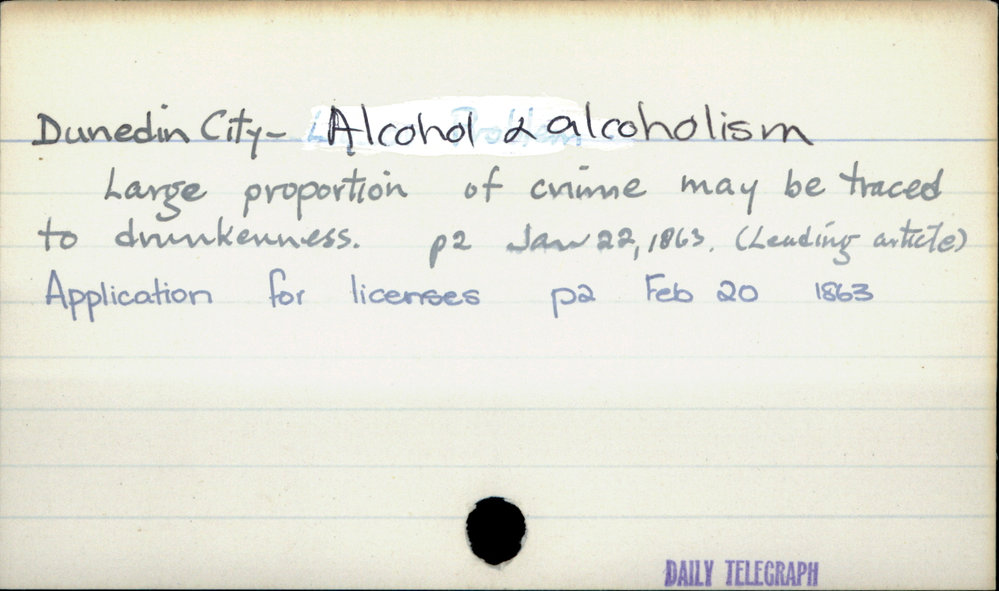 Dunedin City - Alcohol & alcoholism
Large proportion of crime may be traced
to drunkenness. p2 Jan 22, 1863. (Leading article)
Application for licenses p2 Feb 20 1863
DAILY TELEGRAPH